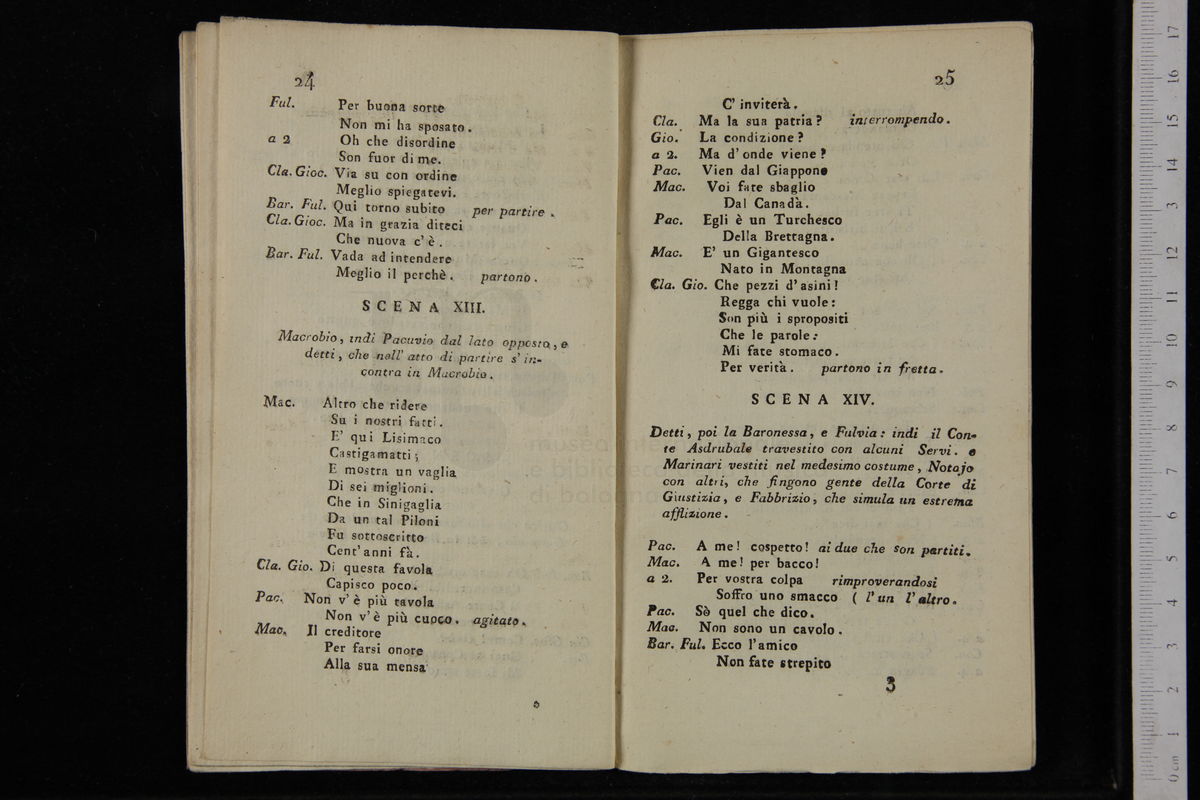 24
Ful. Per buona sorte
Non mi ha sposato.
a 2 Oh che disordine
Son fuor di me.
Cla. Gioc. Via su con ordine
Meglio spiegatevi.
Bar. Ful. Qui torno subito per partire.
Cla. Gioc. Ma in grazia diteci
Che nuova c'è.
Bar. Ful. Vada ad intendere
Meglio il perchè. partono.
SCENA XIII.
Macrobio, indi Pacuvio dal lato opposto, e
detti, che nell' atto di partire s' in-
contra in Macrobio.
Mac. Altro che ridere
Su i nostri fatti.
E' qui Lisimaco
Castigamatti;
E mostra un vaglia
Di sei miglioni.
Che in Sinigaglia
Da un tal Piloni
Fu sottoscritto
Cent' anni fà.
Cla. Gio. Di questa favola
Capisco poco.
Pac. Non v' è più tavola
Non v' è più cuoco. agitato.
Mac. Il creditore
Per farsi onore
Alla sua mensa
25
C' inviterà.
Cla. Ma la sua patria? interrompendo.
Gio. La condizione?
a 2. Ma d' onde viene?
Pac. Vien dal Giappone
Mac. Voi fate sbaglio
Dal Canadà.
Pac. Egli è un Turchesco
Della Brettagna.
Mac. E' un Gigantesco
Nato in Montagna
Cla. Gio. Che pezzi d' asini!
Regga chi vuole:
Son più i spropositi
Che le parole:
Mi fate stomaco.
Per verità. partono in fretta.
SCENA XIV.
Detti, poi la Baronessa, e Fulvia: indi il Con-
te Asdrubale travestito con alcuni Servi. e
Marinari vestiti nel medesimo costume, Notajo
con altri, che fingono gente della Corte di
Giustizia, e Fabbrizio, che simula un estrema
afflizione.
Pac. A me! cospetto! ai due che son partiti.
Mac. A me! per bacco!
a 2. Per vostra colpa rimproverandosi
Soffro uno smacco ( l' un l' altro.
Pac. Sò quel che dico.
Mac. Non sono un cavolo.
Bar. Ful. Ecco l' amico
Non fate strepito
3
museo
e biblioteca
di bologna
0 cm 1 2 3 4 5 6 7 8 9 10 11 12 13 14 15 16 17